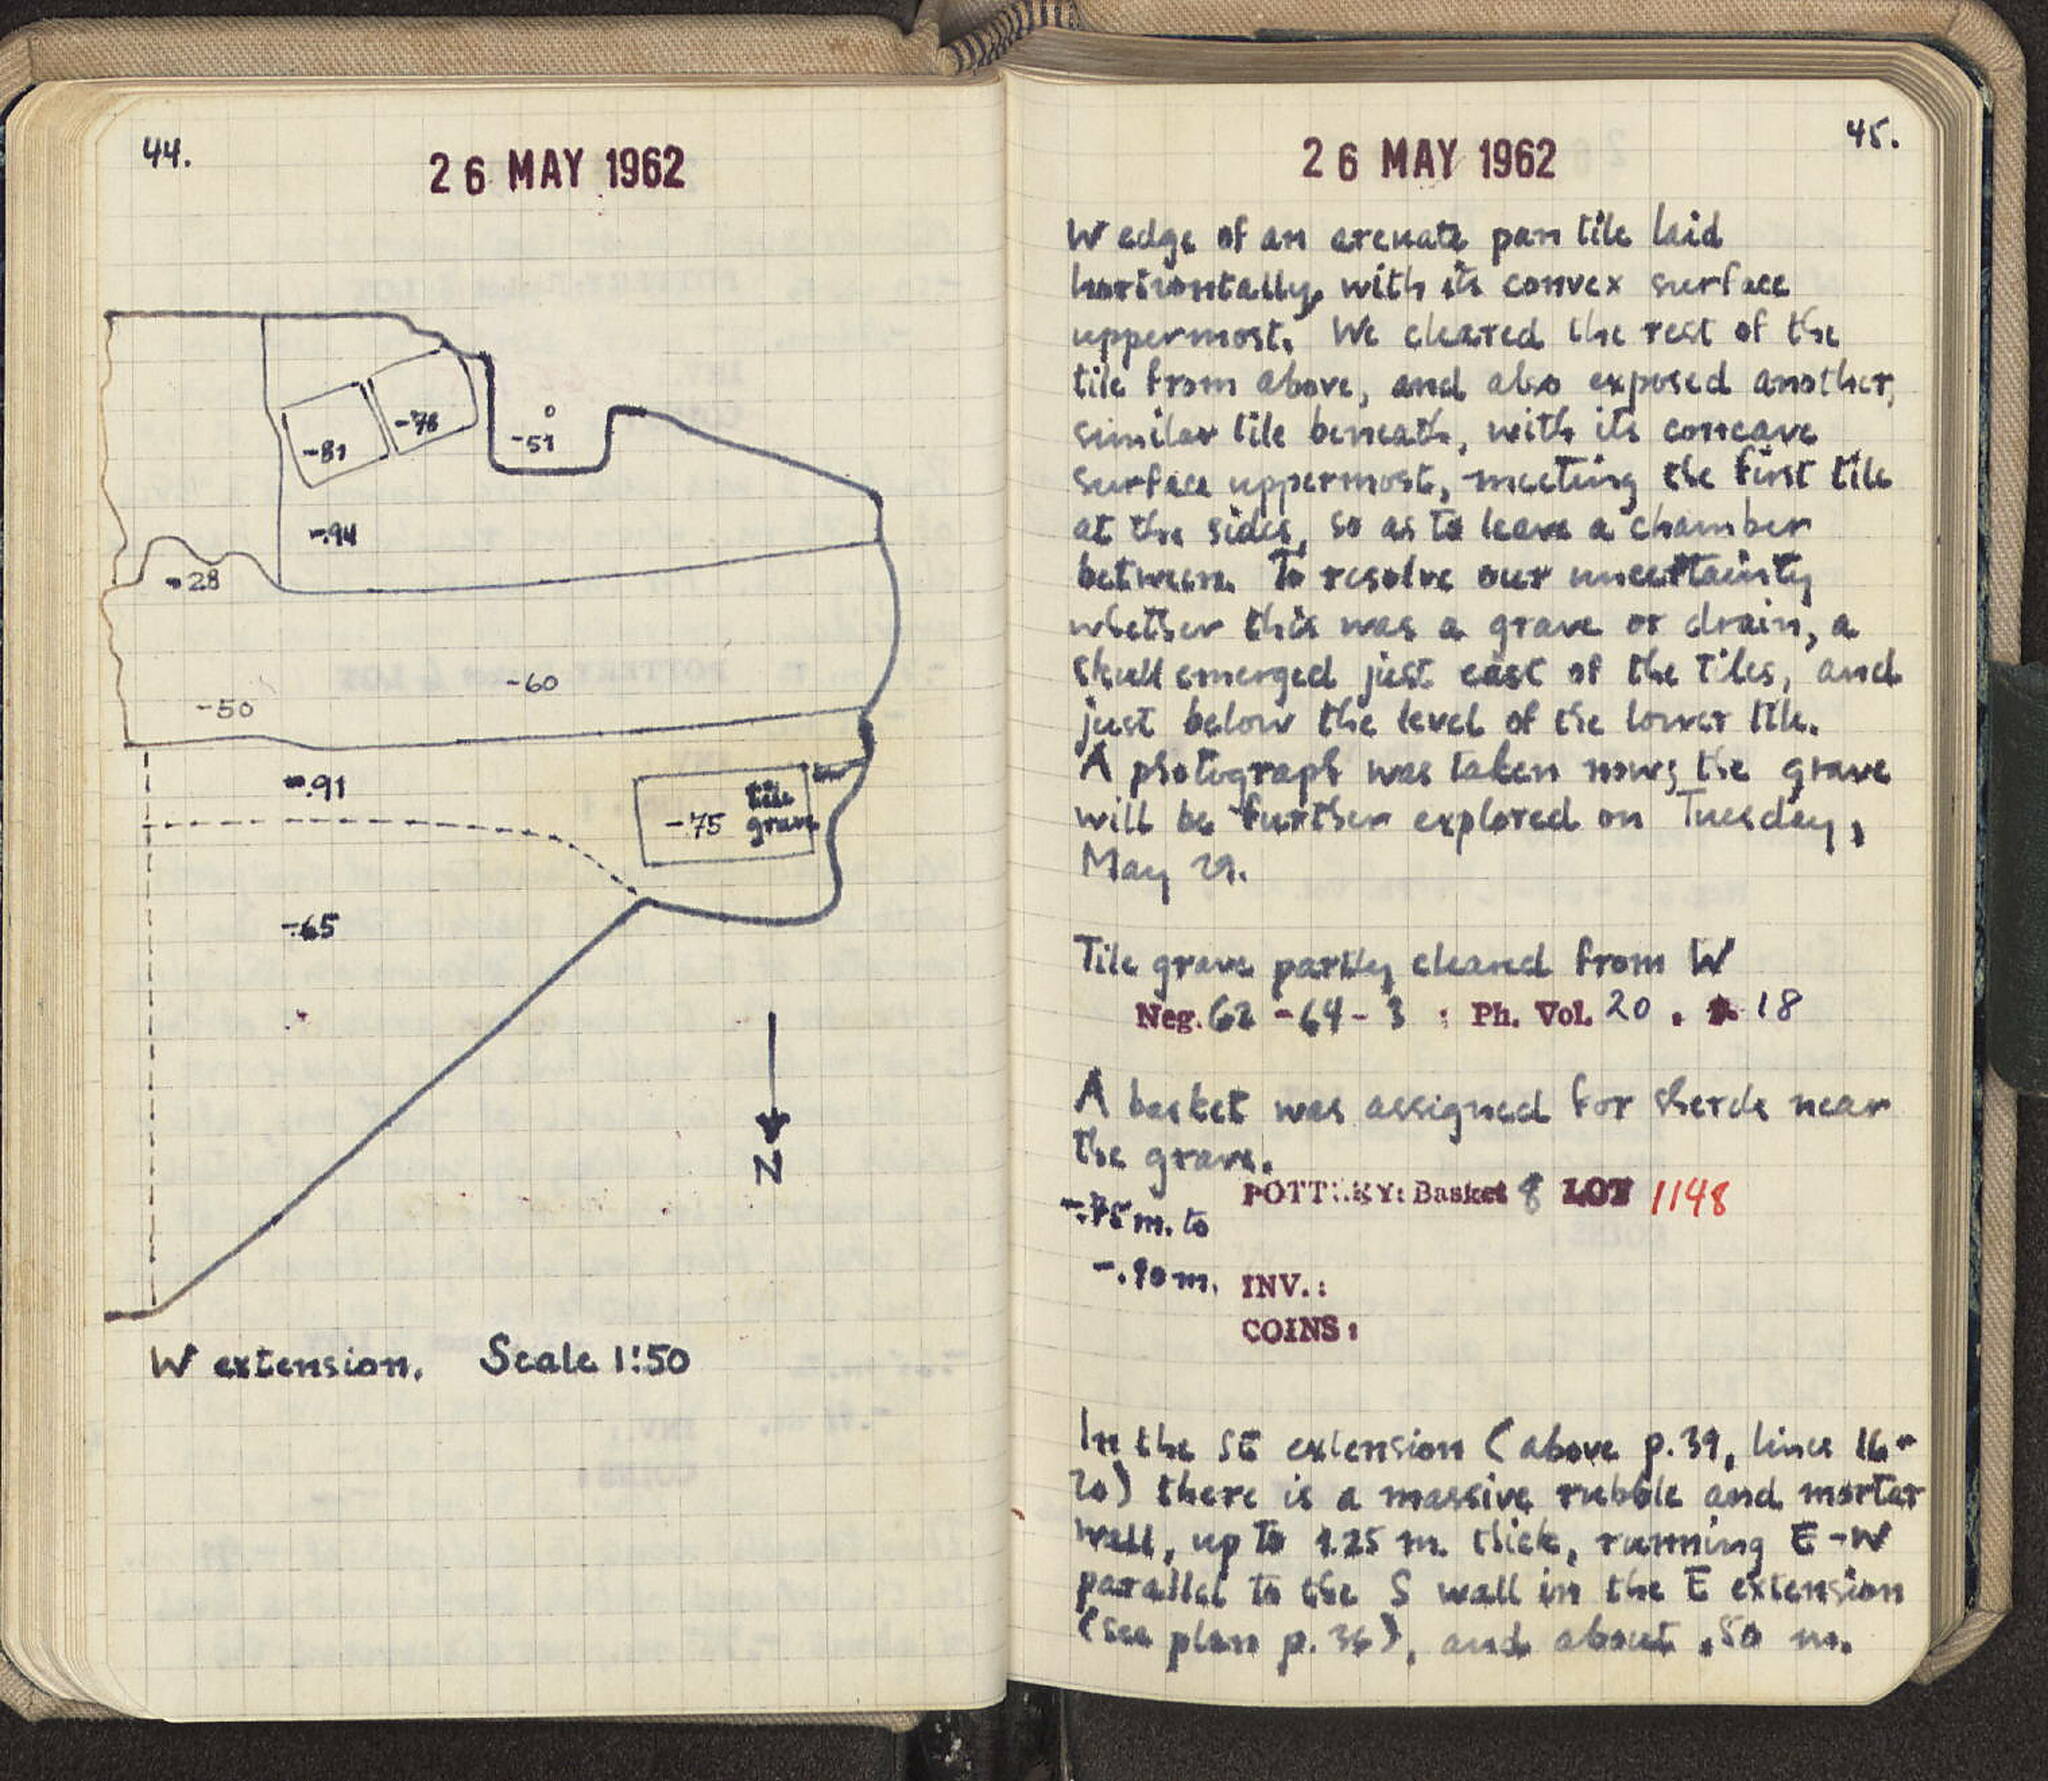 44.
26 MAY 1962
-81
-78
-51
-.94
-28
-60
-50
-.91
-75
tile
grave
-.65
N
W extension. Scale 1:50
45.
26 MAY 1962
W edge of an arcuate pan tile laid
horizontally, with its convex surface
uppermost. We cleared the rest of the
tile from above, and also exposed another,
similar tile beneath, with its concave
surface uppermost, meeting the first tile
at the sides, so as to leave a chamber
between. To resolve our uncertainty
whether this was a grave or drain, a
skull emerged just east of the tiles, and
just below the level of the lower tile.
A photograph was taken now; the grave
will be further explored on Tuesday,
May 29.
Tile grave partly cleared from W
Neg. 62-64-3 : Ph. Vol. 20 . 18
A basket was assigned for sherds near
the grave.
POTTERY: Basket 8 LOT 1148
-.75 m. to
-.90 m. INV.:
COINS:
In the SE extension (above p.39, lines 16-
20) there is a massive rubble and mortar
wall, up to 1.25 m. thick, running E-W
parallel to the S wall in the E extension
(see plan p.36), and about .50 m.